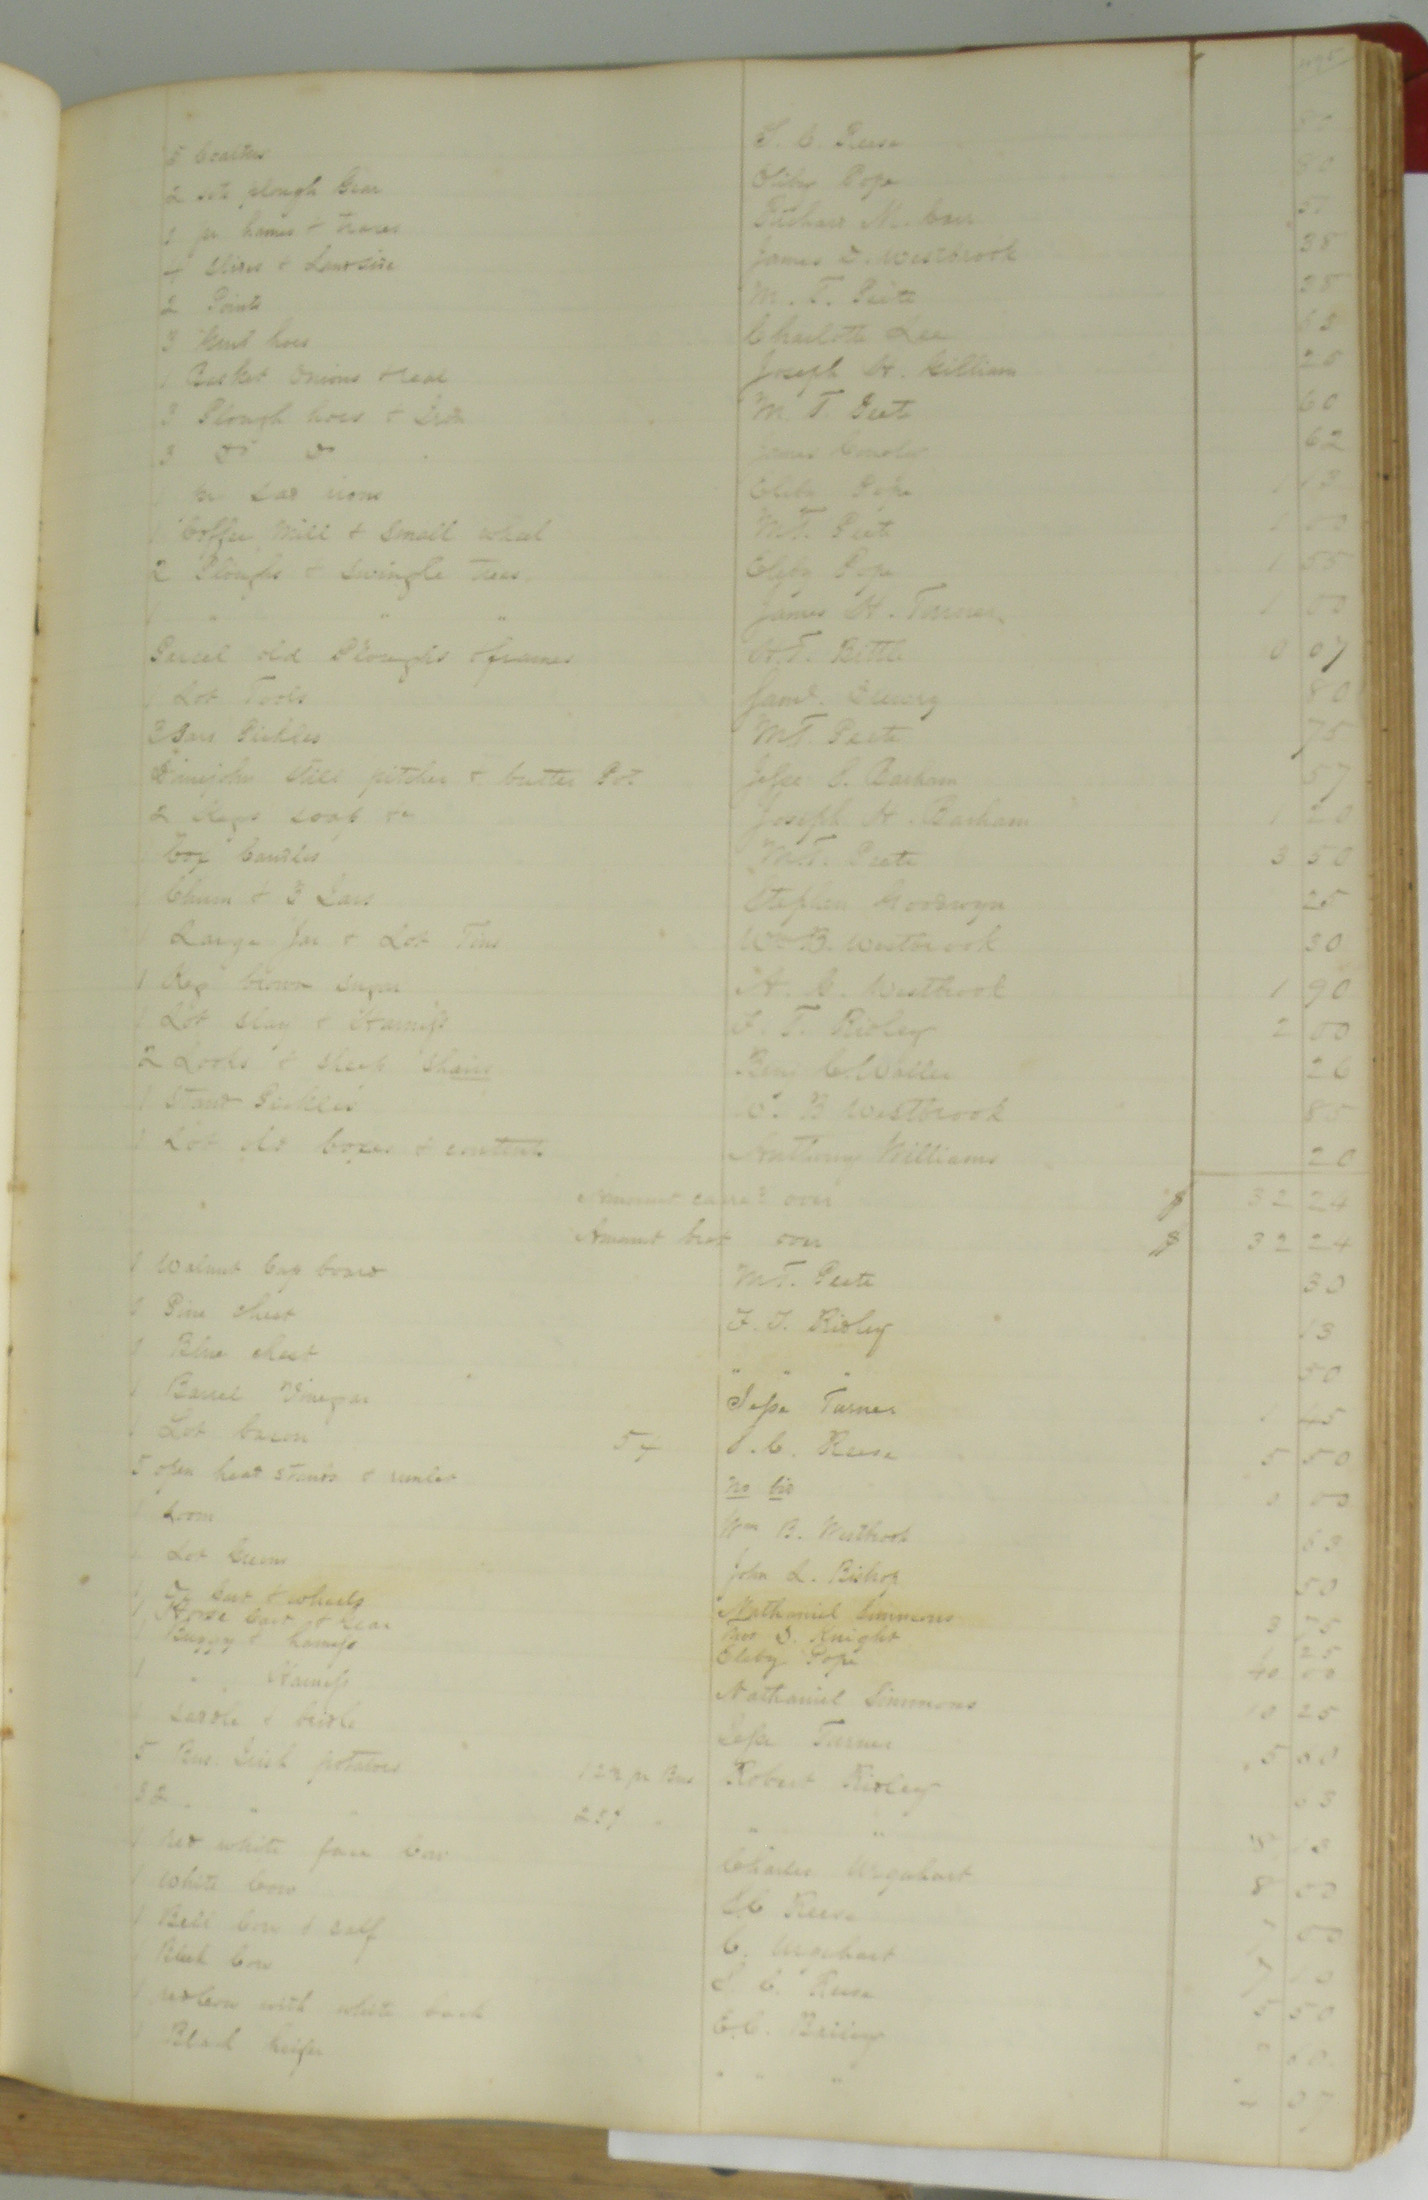 5 Coarters S. C. Reese 80
2 sets plough Gear Eliby Pope 80
1 pr hames & traces Richard M. Carr 50
4 slides & Landside James D. Westbrook 38
2 Points M. T. Peete 38
3 hoes Charlotte Lee 63
1 Basket Onions Joseph H. Gilliam 25
3 Plough hoes & Iron M. T. Peete 60
3 Do Do James 62
1 pr sad irons Eliby Pope 1 13
1 Coffee Mill & Small wheel M.T. Peete 1 00
2 Ploughs & Swingle trees Eliby Pope 1 55
1 " " " James H. Turner 1 00
Parcel old Ploughs & frames H.T. Bittle 0 07
1 Lot Tools Saml. Drewry 80
3 Jars Pickles M.T. Peete 75
Dimijohn still pitcher & butter Pot Jesse S. Barham 57
2 Kegs soap &c Joseph H. Barham 1 20
1 Box Candles M.T. Peete 3 50
1 Churn & 3 Jars Stephen Goodwyn 25
1 Large Jar & Lot Tins Wm B. Westbrook 30
1 Keg brown sugar H. C. Westbrook 1 90
1 Lot slay & Harness F. T. Ridley 2 00
2 Looks & sleep Shains Benj C. Waller 26
1 Stand Pickles W. B. Westbrook 85
1 Lot old boxes & contents Anthony Williams 20
Amount carrd over $ 32 24
Amount brot over $ 32 24
1 Walnut Cup board M.T. Peete 30
1 Pine chest F. T. Ridley 13
1 Blue chest " " " 50
1 Barrel Vinegar Jesse Turner 1 45
1 Lot bacon 54 S. C. Reese 5 50
5 open head stands & runlet no bid 0 00
1 Loom Wm B. Westbrook 63
1 Lot John L. Bishop 50
1 Ox Cart & wheels Nathaniel Simmons 3 75
1 Horse Cart & Gear J. Knight 25
1 Buggy & harness Eliby Pope 40 00
1 " Harness Nathaniel Simmons 10 25
1 Saddle & bridle Jesse Turner 5 00
5 Bus. Irish potatoes 12½ pr Bus Robert Ridley 63
32 " " " " 8 13
1 red white face Cow Charles Urquhart 8 00
1 White Cow S.C Reese
1 Bell Cow & calf C. Urquhart
1 Cow S. C. Reese 5 50
1 red Cow with white back E.C. Bailey
1 Black heifer " " "